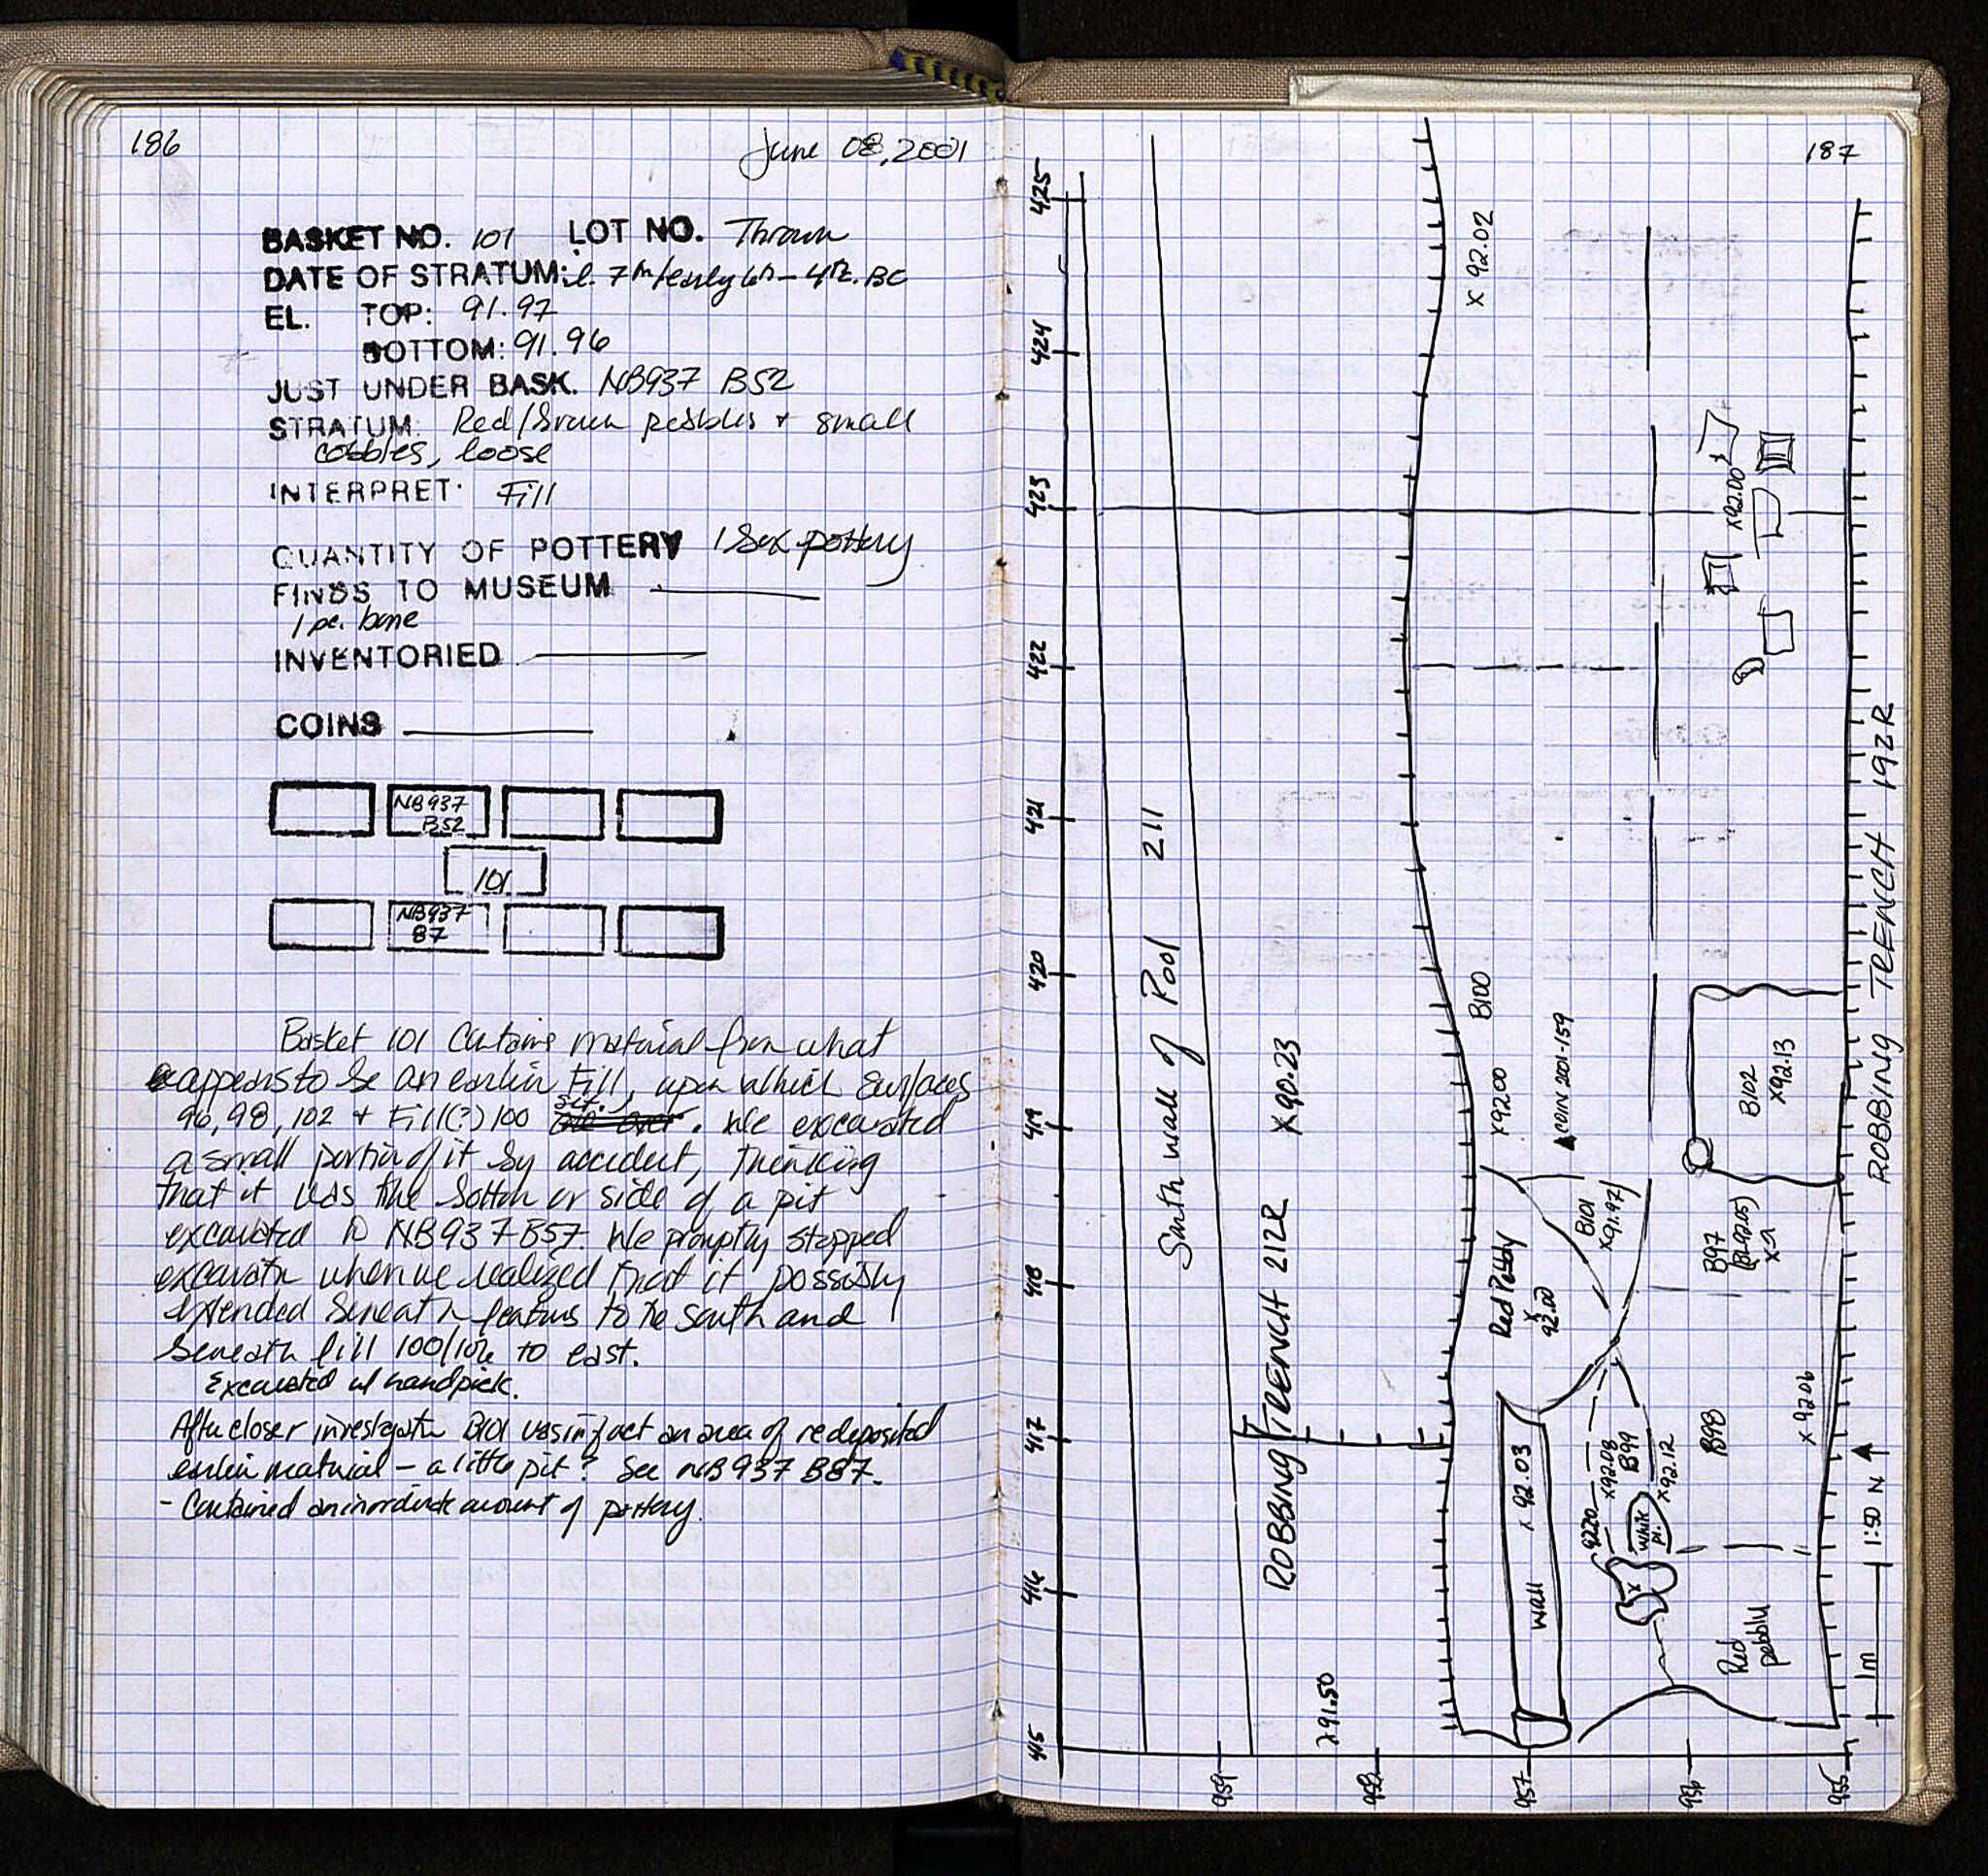 186
June 08, 2001
BASKET NO. 101 LOT NO. Thrown
DATE OF STRATUM: l. 7th/early 6th - 4th c. BC
EL. TOP: 91.97
BOTTOM: 91.96
JUST UNDER BASK. NB937 B52
STRATUM: Red/brown pebbles + small
cobbles, loose
INTERPRET. Fill
QUANTITY OF POTTERY 1 box pottery
FINDS TO MUSEUM
1 pc. bone
INVENTORIED
COINS
NB937
B52
101
NB937
87
Basket 101 contains material from what
appears to be an earlier fill, upon which surfaces
96, 98, 102 + Fill(?) 100 sit. We excavated
a small portion of it by accident, thinking
that it was the bottom or side of a pit
excavated in NB937 B57. We promptly stopped
excavation when we realized that it possibly
extended beneath features to the south and
beneath fill 100/102 to east.
Excavated w/ handpick.
After closer investigation B101 was in fact an area of redeposited
earlier material - a little pit? See NB937 B87.
- Contained an inordinate amount of pottery.
187
425
424
423
422
421
420
419
418
417
416
415
959
958
957
956
955
South wall of Pool 211
ROBBING TRENCH 212R
x 90.23
x 91.50
x 92.02
B100
x 92.00
COIN 2001-159
B101
x 91.97
Red Pebbly
x
92.00
Wall x 92.03
92.20
x 92.08
B99
x 92.12
White
pl.
x
x 92.00
B102
x 92.13
B97
B98
x 92.06
Red
pebbly
ROBBING TRENCH 192R
1m
1:50 N